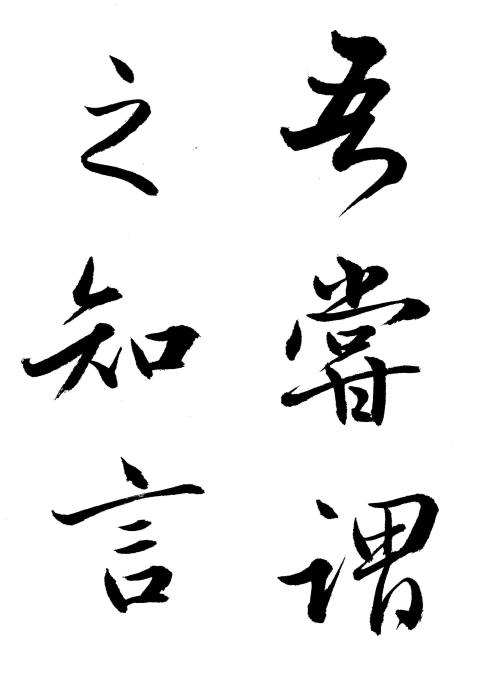 吾甞謂
之知言